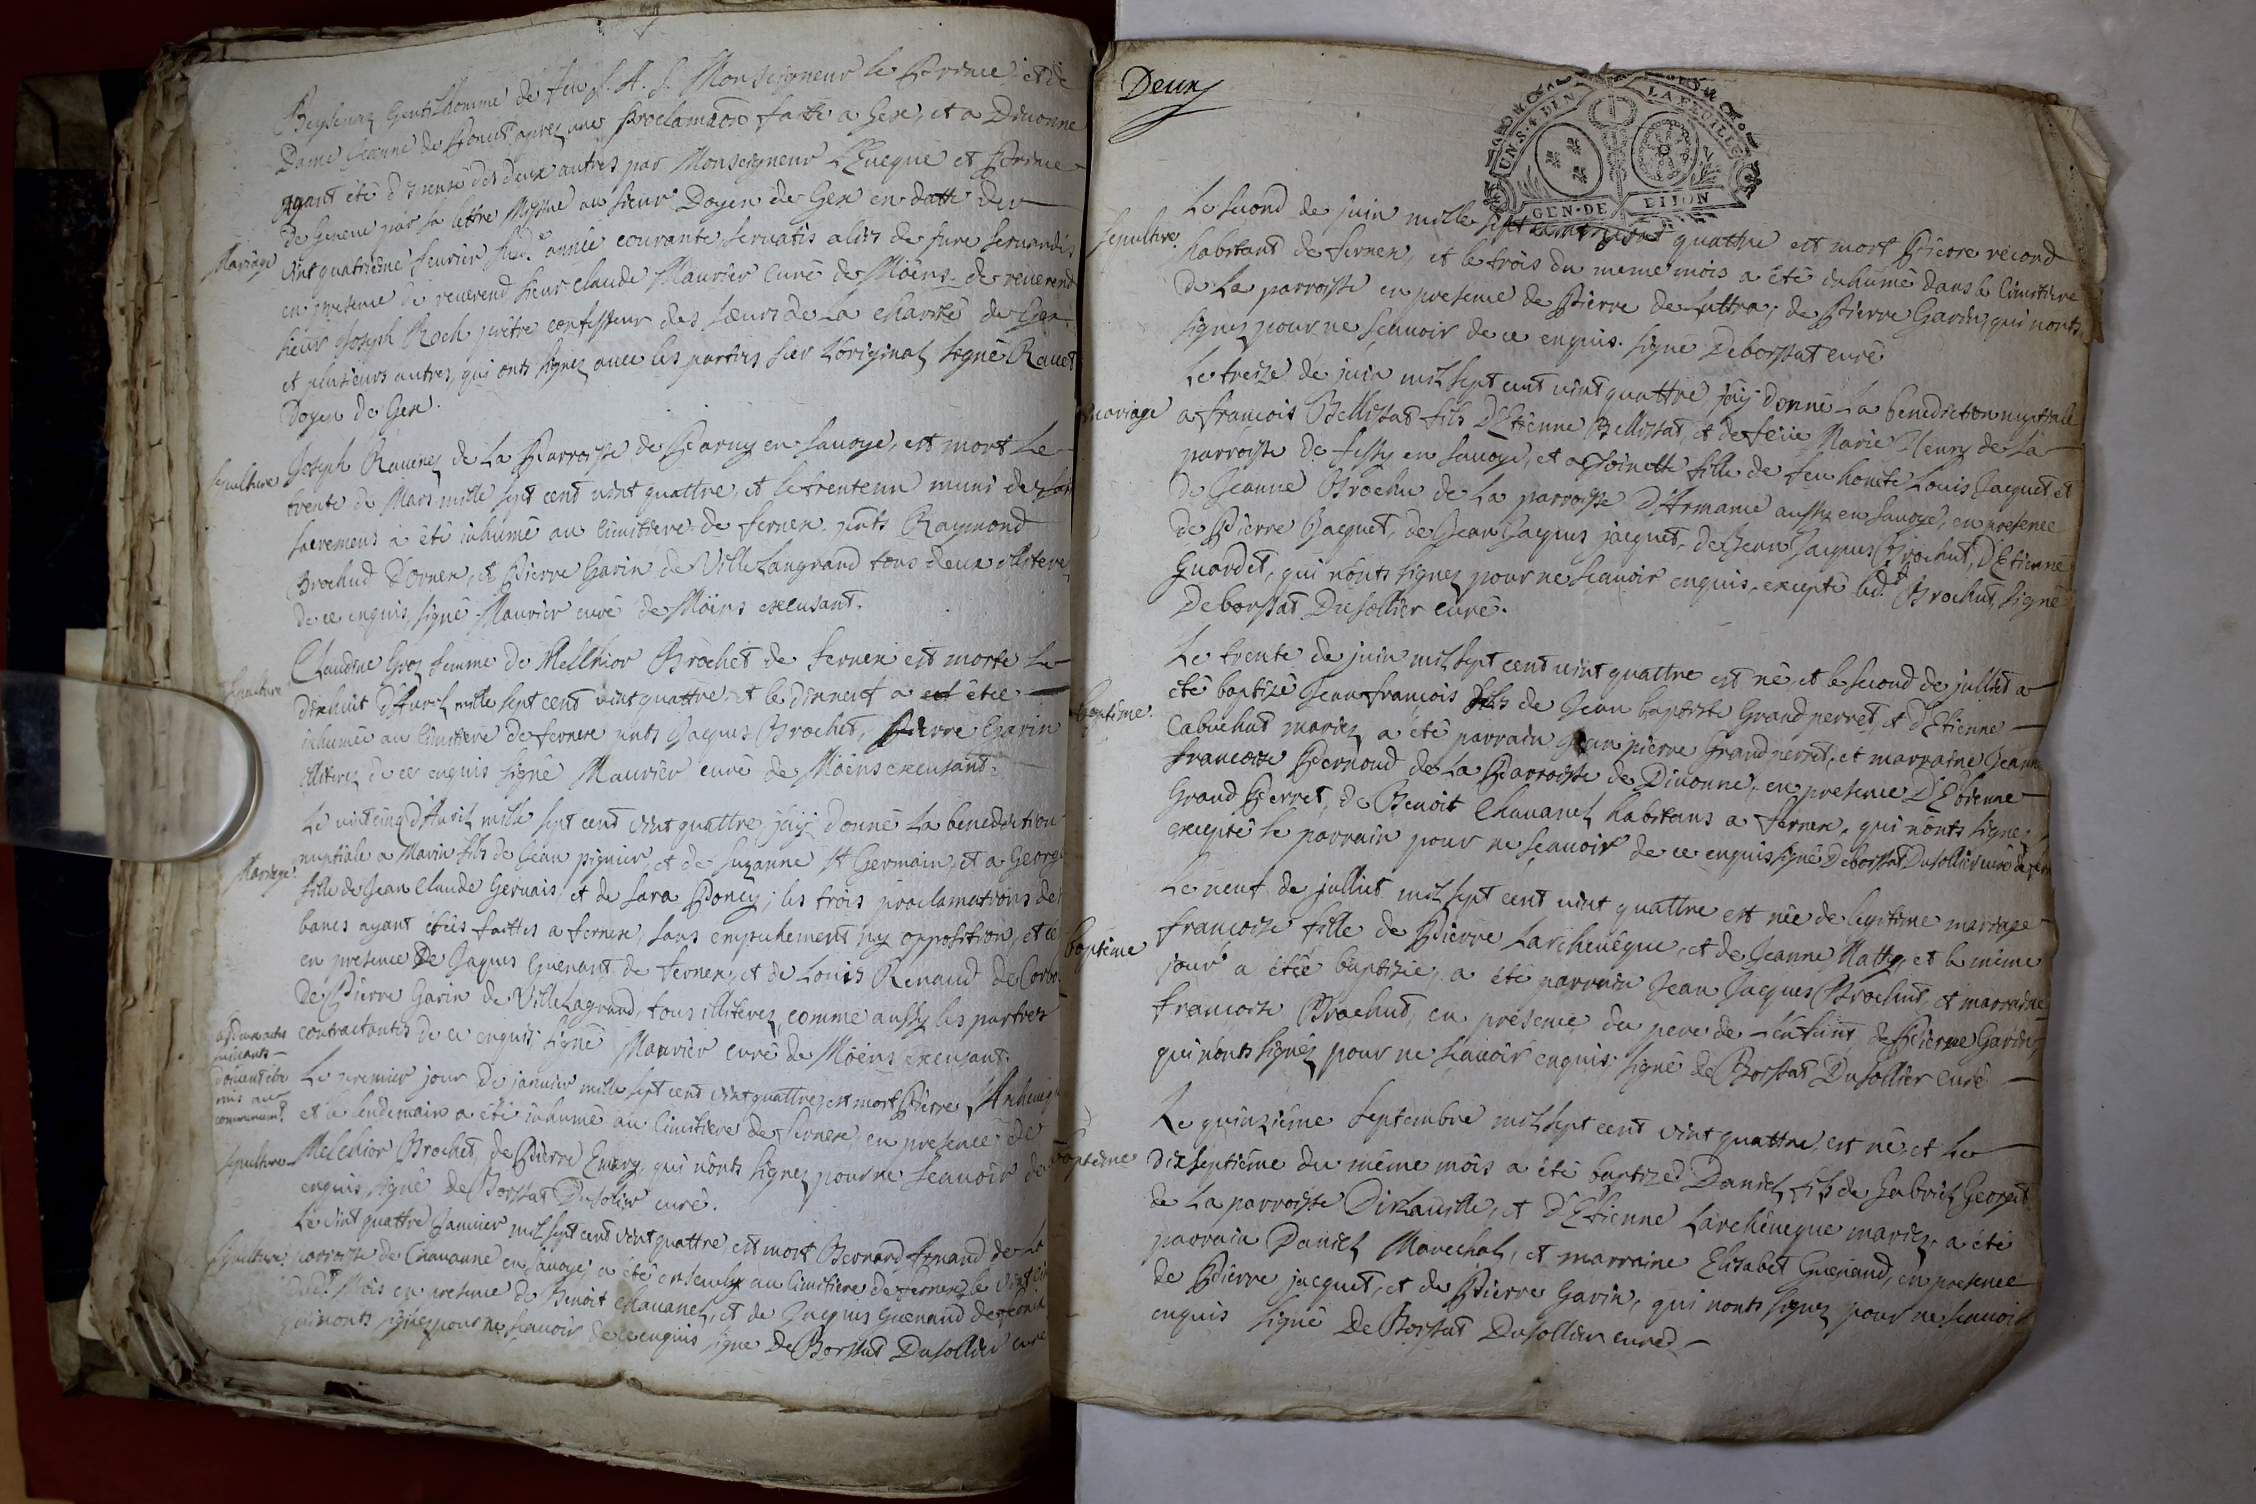 Gentilhomme de feu S. A. S. Monseigneur le Prince et de
Dame Jeanne de après une proclamaõn faitte a Gex, et a Divonne
ayant été dispensé des deux autres par Monseigneur L'Eveque et Prince
de Geneve par sa lettre au sieur Doyen de Gex en datte du
Mariage
vint quatrieme fevrier année courante servatis aliis de jure servandis
en presence de reverend sieur claude Maurier Curé de Möens de reverend
sieur Joseph Roch prêtre confesseur des soeurs de La charité de Gex
et plusieurs autres, qui onts signez avec les parties sur L'original signé
Doyen de Gex.
sepulture
Joseph Ravenez de La Parroisse de en savoye, est mort Le
trente de Mars mille sept cend vint quattre, et le trenteun muni de
sacremens a été inhumé au Cimitiere de fernex pnts Raymond
Brochud D'Ornex, et Pierre Garin de Ville Langrand tous deux illiterez
de ce enquis, signé Maurier curé de Möins excusant.
sepulture
Claudine Groz femme de Mellhior Brochet de fernex est morte Le
dixhuit d'Avril mille sept cend vint quattre et le dixneuf a été
inhumée au Cimitiere de fernex pnts Jaques Brochet, Pierre Garin
illiterez de ce enquis signé Maurier curé de Möins excusant.
Le vintcinq d'Avril mille sept cend vint quattre, j'ay donné La benediction
Mariage
nuptiale a Marin fils de Jean pignier, et de Suzanne St Germain, et a George
fille de Jean Claude Gervais, et de Sara Poncy; les trois proclamations des
bancs ayant étées faittes a fernex, sans empechement ny opposition, et ce
en presence De Jaques Guenant de fernex, et de Louis Renaud de
De Pierre Garin de Ville Lagrand, tous illiterez, comme aussy les parties
contractantes de ce enquis signé Maurier curé de Möens excusant.
deux actes
suivants
doivent être
mis au
commencemt
Le premier jour de janvier mille sept cent vint quattre, est mort Pierre
et le lendemain a été inhumé au Cimitiere de fernex, en presence de
sepulture
Melchior Brochet, de Pierre Emery, qui n'onts signez pour ne scavoir de
enquis, signé de Borssat Dusolier curé.
Le vint quattre Janvier mil sept cent vint quattre, est mort Bernard de La
sepulture
parroisse de Chavanne en savoye, a été enseveli au Cimitiere de fernex le vint
Mois en presence de Benoit Chavanel, et de Jacques Guenand de
qui n'onts signez pour ne scavoir de ce enquis signé de Borssat Dusollier curé
Deux
UN. S. 4 D. LA FEUILLE
GEN. DE DIJON
Le second de juin mille sept quattre est mort Pierre
sepulture
habitant de fernex, et le trois du meme mois a été inhumé dans le Cimitiere
de La parroisse en presence de Pierre de Lattra, de Pierre Garin, qui n'onts
signez pour ne scavoir de ce enquis. signé Deborssat curé
Le treize de juin mil sept cent vint quattre j'ay donné La benediction nuptiale
mariage
a francois Bellissat fils D'Etienne Bellissat, et de feüe Marie Fleury de La
parroisse de fessy en savoye, et a Thoinette fille de feu honete Louis Jacquet et
de Jeanne Brochu de La parroisse D'Armanie aussy en savoye, en presence
de Pierre Jacquet, de Jean Jaques jacquet, de Jean Jaques Brochut, D'Etienne
Guardet, qui n'onts signez pour ne scavoir enquis, excepté led.t Brochut, signé
Deborssat Dusollier curé.
Le trente de juin mil sept cent vint quattre est né, et le second de julliet a
baptême
été baptizé Jean francois fils de Jean baptiste Grand perret, et d'Etienne
Cabuchut mariez, a été parrain Jean pierre Grand perret, et marraine Jeanne
francoise Pernoud de La Parroisse de Divonne, en presence D'Etienne
Grand Perret, de Benoit Chavanel habitans a fernex, qui n'onts signez
excepté le parrain pour ne scavoir de ce enquis signé Deborssat Dusollier curé de
Le neuf de julliet mil sept cent vint quattre est née de legitime mariage
baptême
francoise fille de Pierre Larcheveque, et de Jeanne Matty, et le même
jour a étée baptizée, a été parrain Jean Jacques Brochut, et marraine
francoise Brochut, en presence du pere de L'enfant, de Pierre Garin,
qui n'onts signéz pour ne scavoir enquis. signé de Borssat Dusollier Curé
Le quinzieme septembre mil sept cent vint quattre, est né, et Le
baptême
dixseptiême du même mois a été baptizé Daniel fils de Gabriel George
de La parroisse, et D'Etienne Larcheveque mariez, a été
parrain Daniel Marechal, et marraine Elizabet Guenand, en presence
de Pierre jacquet, et de Pierre Garin, qui n'onts signez pour ne scavoir
enquis signé De Borssat Dusollier curé.